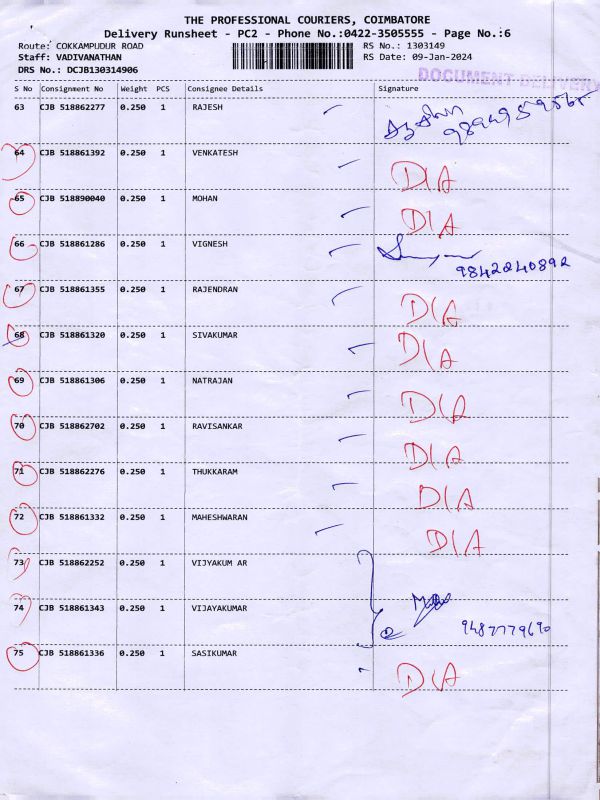 THE PROFESSIONAL COURIERS, COIMBATORE
Delivery Runsheet - PC2 - Phone No.:0422-3505555 - Page No.:6
Route: COKKAMPUDUR ROAD RS No.: 1303149
Staff: VADIVANATHAN RS Date: 09-Jan-2024
DRS No.: DCJB130314906
DOCUMENT DELIVERY
S No Consignment No Weight PCS Consignee Details Signature
63 CJB 518862277 0.250 1 RAJESH
64 CJB 518861392 0.250 1 VENKATESH D/A
65 CJB 518890040 0.250 1 MOHAN D/A
66 CJB 518861286 0.250 1 VIGNESH
9842240892
67 CJB 518861355 0.250 1 RAJENDRAN D/A
68 CJB 518861320 0.250 1 SIVAKUMAR D/A
69 CJB 518861306 0.250 1 NATRAJAN D/A
70 CJB 518862702 0.250 1 RAVISANKAR D/A
71 CJB 518862276 0.250 1 THUKKARAM D/A
72 CJB 518861332 0.250 1 MAHESHWARAN D/A
73 CJB 518862252 0.250 1 VIJYAKUM AR
74 CJB 518861343 0.250 1 VIJAYAKUMAR
9487779690
75 CJB 518861336 0.250 1 SASIKUMAR D/A